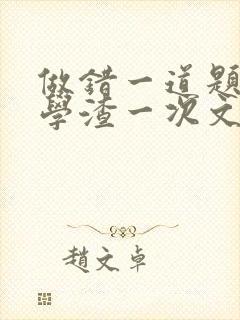 做錯一道題
學渣一次文
趙文卓